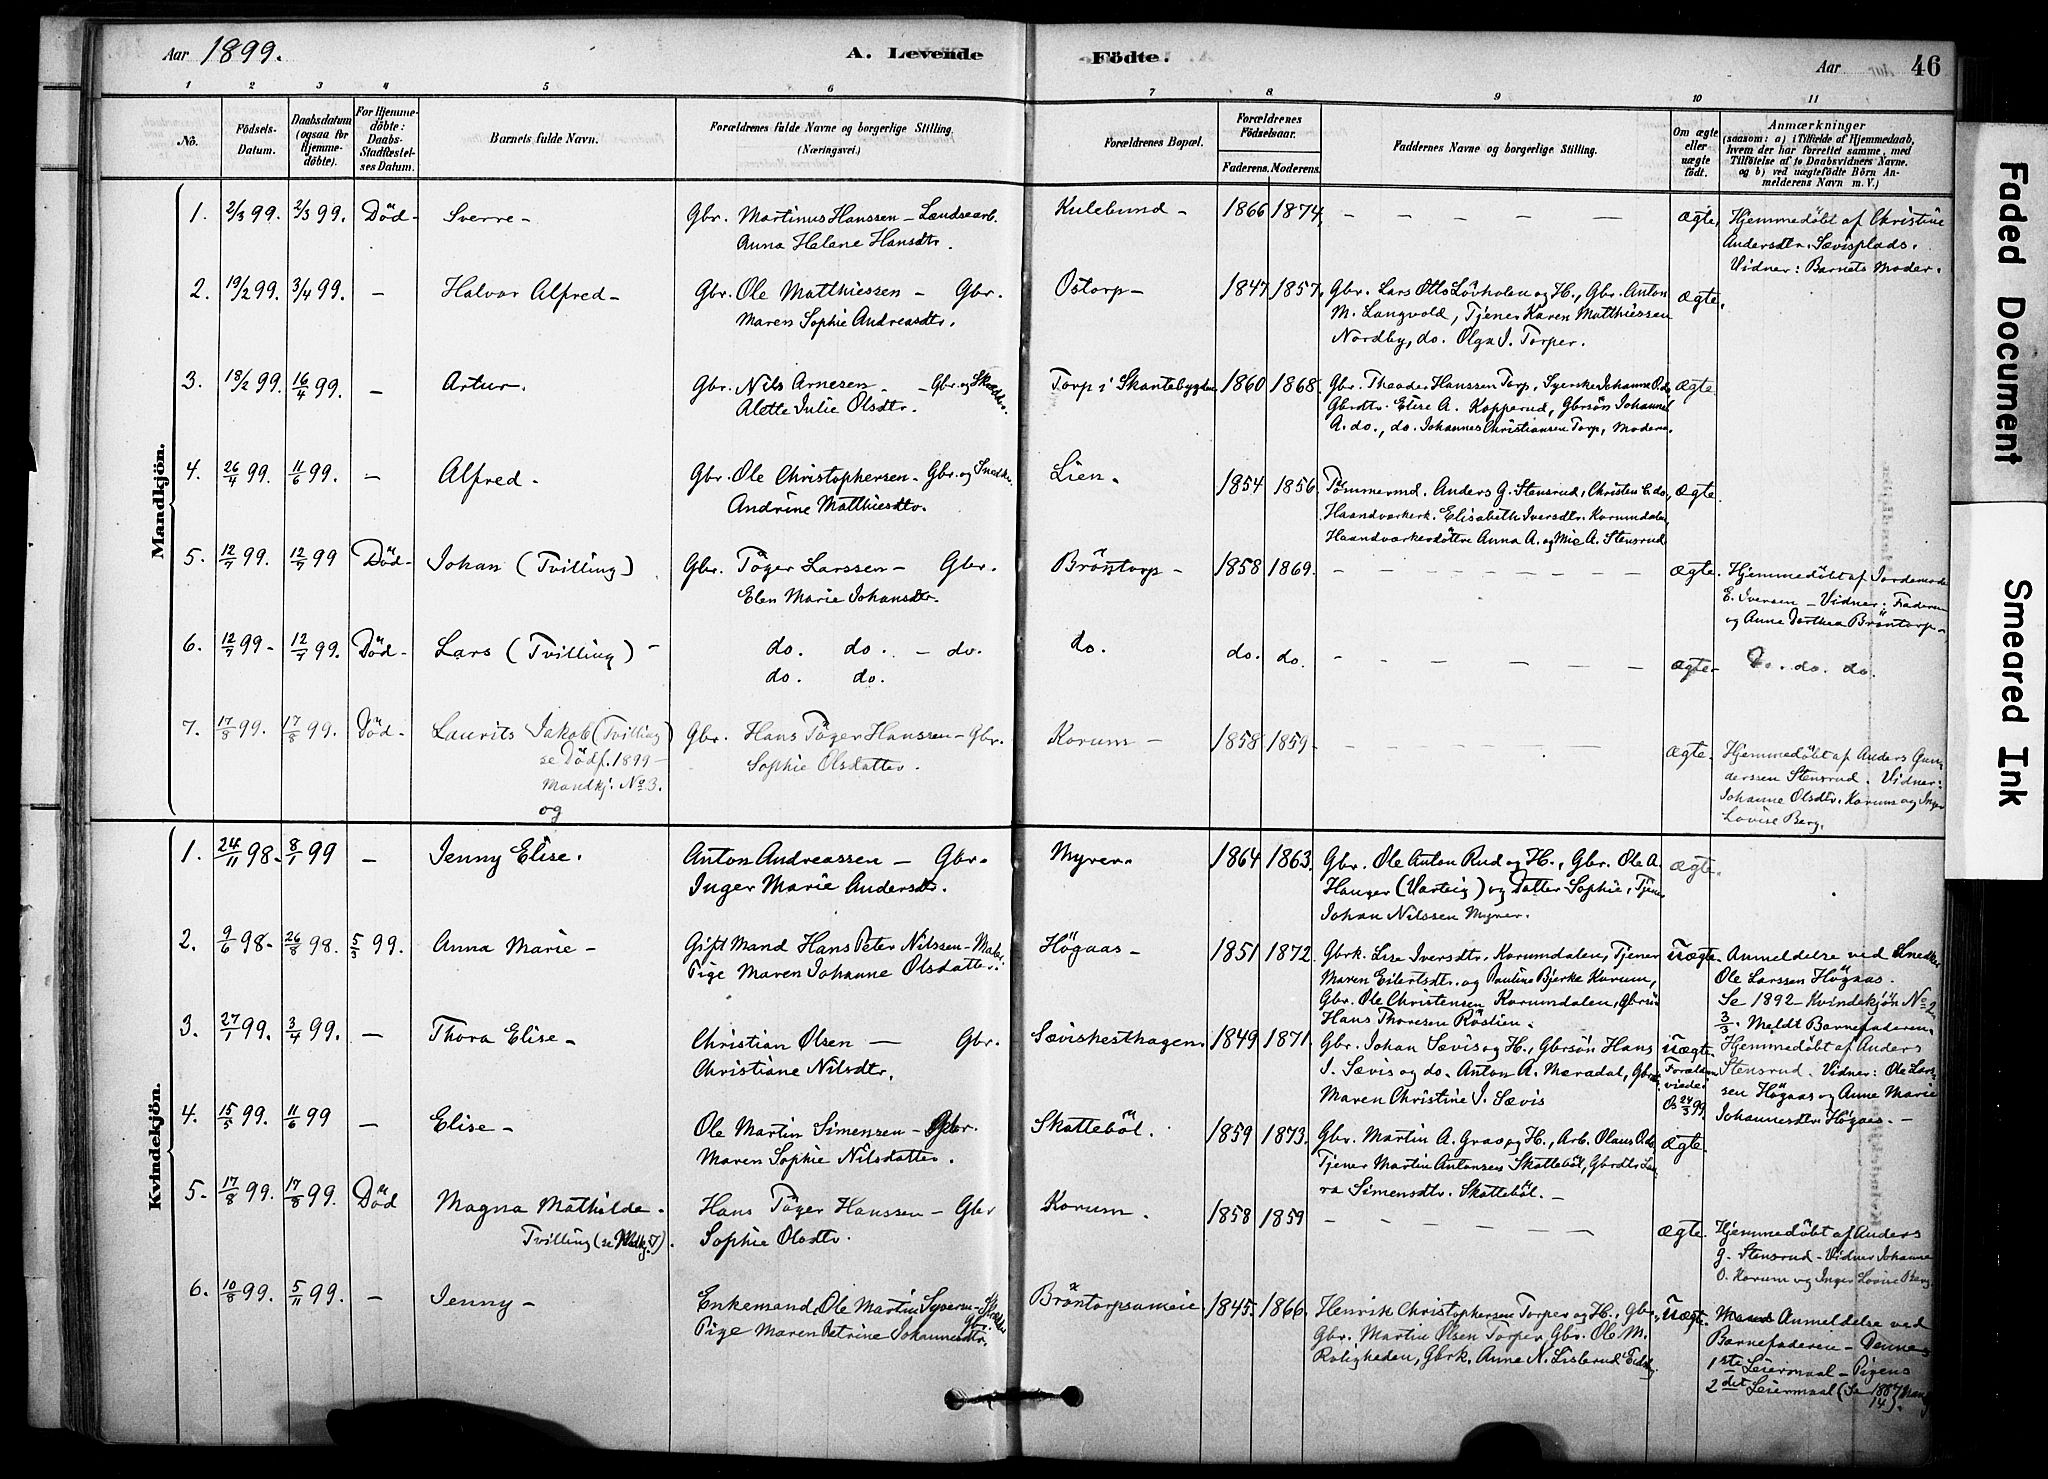 Aar 1899.
A. Levende
Fødte.
Aar
46
1 2 3 4 5 6 7 8 9 10 11
No.
Fødsels-
Datum.
Daabsdatum
(ogsaa for
Hjemme-
døbte).
For Hjemme-
døbte:
Daabs-
Stadfæstel-
ses Datum.
Barnets fulde Navn.
Forældrenes fulde Navne og borgerlige Stilling.
(Næringsvei.)
Forældrenes Bopæl.
Forældrenes
Fødselsaar.
Faderens. Moderens.
Faddernes Navne og borgerlige Stilling.
Om ægte
eller
uægte
født.
Anmærkninger
(saasom: a) i Tilfælde af Hjemmedaab,
hvem der har forrettet samme, med
Tilføielse af to Daabsvidners Navne.
og b) ved uægtefødte Börn An-
melderens Navn m. V.)
Mandkjön.
1. 2/3 99. 2/3 99. Död- Sverre- Gbr. Martinus Hanssen - Landsearb. Kulebund - 1866 1874, - - - - - ægte, Hjemmedöbt af Christine
Anna Helene Hansdtr. Andersdtr. Sævisplads.
Vidner: Barnets Moder.
2. 19/2 99. 3/4 99. - Halvor Alfred- Gbr. Ole Matthiessen - Gbr. Ostorp- 1847 1857. Gbr. Lars Otts Lövholen og H., Gbr. Anton Ægte.
Maren Sophie Andreasdtr. M. Langvold, Tjener Karen Matthiessen
Nordby, do. Olga J. Torper.
3. 18/2 99. 16/4 99. - Artur. Gbr. Nils Arnesen - Gbr. og Skrædder. Torp i Skantebygden 1860 1868. Gbr. Theodor Hanssen Torp, Syerske Johanne O. do. ægte.
Alette Julie Olsdtr. Gbrdtr. Elise A. Kopperud, Gbrsön Johannes
A. do., do. Johannes Christiansen Torp, Moderen.
4. 26/4 99. 11/6 99. - Alfred- Gbr. Ole Christophersen - Gbr. og Snedker. Lien. 1854 1856. Tömmermd. Anders G. Stensrud, Christen C. do, ægte.
Andrine Matthiesdtr. Haandværkerk. Elisabeth Iversdtr. Korumdalen,
Haandværkerdöttre Anna A. og Mie A. Stensrud
5. 12/7 99. 12/7 99 Död- Johan (Tvilling) Gbr. Töger Larssen - Gbr. Bröntorp - 1858 1869. - - - - - ægte. Hjemmedöbt af Jordemoder
Elen Marie Johansdtr. E. Iversen - Vidner: Faderen
og Anne Dorthea Bröntorp -
6. 12/7 99 - 12/7 99. Död- Lars (Tvilling) - do. do. - do. do. do. do. - - - - - ægte- Do. do. do.
do. do.
7. 17/8 99. 17/8 99. Död- Laurits Jakob (Tvilling) Gbr. Hans Töger Hanssen - Gbr. Korum - 1858 1859 - - - - - ægte. Hjemmedöbt af Anders Gun-
se Dödf. 1899 - Sophie Olsdatter. derssen Stensrud. Vidner:
Mandkj. No 3. Johanne Olsdtr. Korum og Inger
og Lovise Berg.
Kvindekjön.
1. 24/11 98. 8/1 99 - Jenny Elise. Anton Andreassen - Gbr. Myrer. 1864 1863. Gbr. Ole Anton Rud og H., Gbr. Ole A. ægte.
Inger Marie Andersdtr. Hauger (Varteig) og Datter Sophie, Tjener
Johan Nilssen Myrer.
2. 9/6 98 - 26/8 98. 5/3 99. Anna Marie - Gift Mand Hans Peter Nilssen - Maler Högaas - 1851 1872. Gbrk. Lise Iversdtr. Korumdalen, Tjener Uægte. Anmeldelse ved Snedker
Pige Maren Johanne Olsdatter. Maren Eilertsdtr. og Pauline Bjerke Korum, Ole Larssen Högaas.
Gbr. Ole Christensen Korumdalen, Gbrsön Se 1892 - Kvindekjön No 2.
Hans Thoresen Röstien. 3/3. Meldt Barnefaderen.
3. 27/1 99. 3/4 99. - Thora Elise - Christian Olsen - Gbr. Sævishesthagen. 1849 1871. Gbr. Johan Sævis og H., Gbrsön Hans Uægte. Hjemmedöbt af Anders
Christiane Nilsdtr. J. Sævis og do. Anton A. Mæradal, Gbrdtr. Forældre Stensrud. Vidner: Ole Lars-
Maren Christine J. Sævis viede 24/3 99. sen Högaas og Anne Marie
Johannesdtr. Högaas. -
4. 15/5 99. 11/6 99 - Elise - Ole Martin Simensen - Gbr. Skatteböl. 1859 1873. Gbr. Martin A. Graa og H., Arb. Olaus O. do. ægte.
Maren Sophie Nilsdatter. Tjener Martin Antonsen Skatteböl, Gbrdtr. Lau-
ra Simensdtr. Skatteböl. -
5. 17/8 99. 17/8 99. Död Magna Mathilde. Hans Töger Hanssen - Gbr Korum. 1858 1859 - - - - - ægte. Hjemmedöbt af Anders
Tvilling (se Mdkj. 7). Sophie Olsdtr. G. Stensrud - Vidner Johanne
O. Korum og Inger Lovise Berg.
6. 10/8 99. 5/11 99. - Jenny - Enkemand Ole Martin Syvern - Gbr. Bröntorpsameie 1845. 1866. Henrik Christophersen Torper og H., Gbr. Uægte. Anmeldelse ved
Pige Maren Petrine Johannesdtr. Gbr. Martin Olsen Torper, Gbr. Ole M. Barnefaderen - Dennes
Roligheden, Gbrk. Anne N. Lisbrud 1ste Leiermaal - Pigens
2det Leiermaal (Se 1887
14).
Faded Document
Smeared Ink